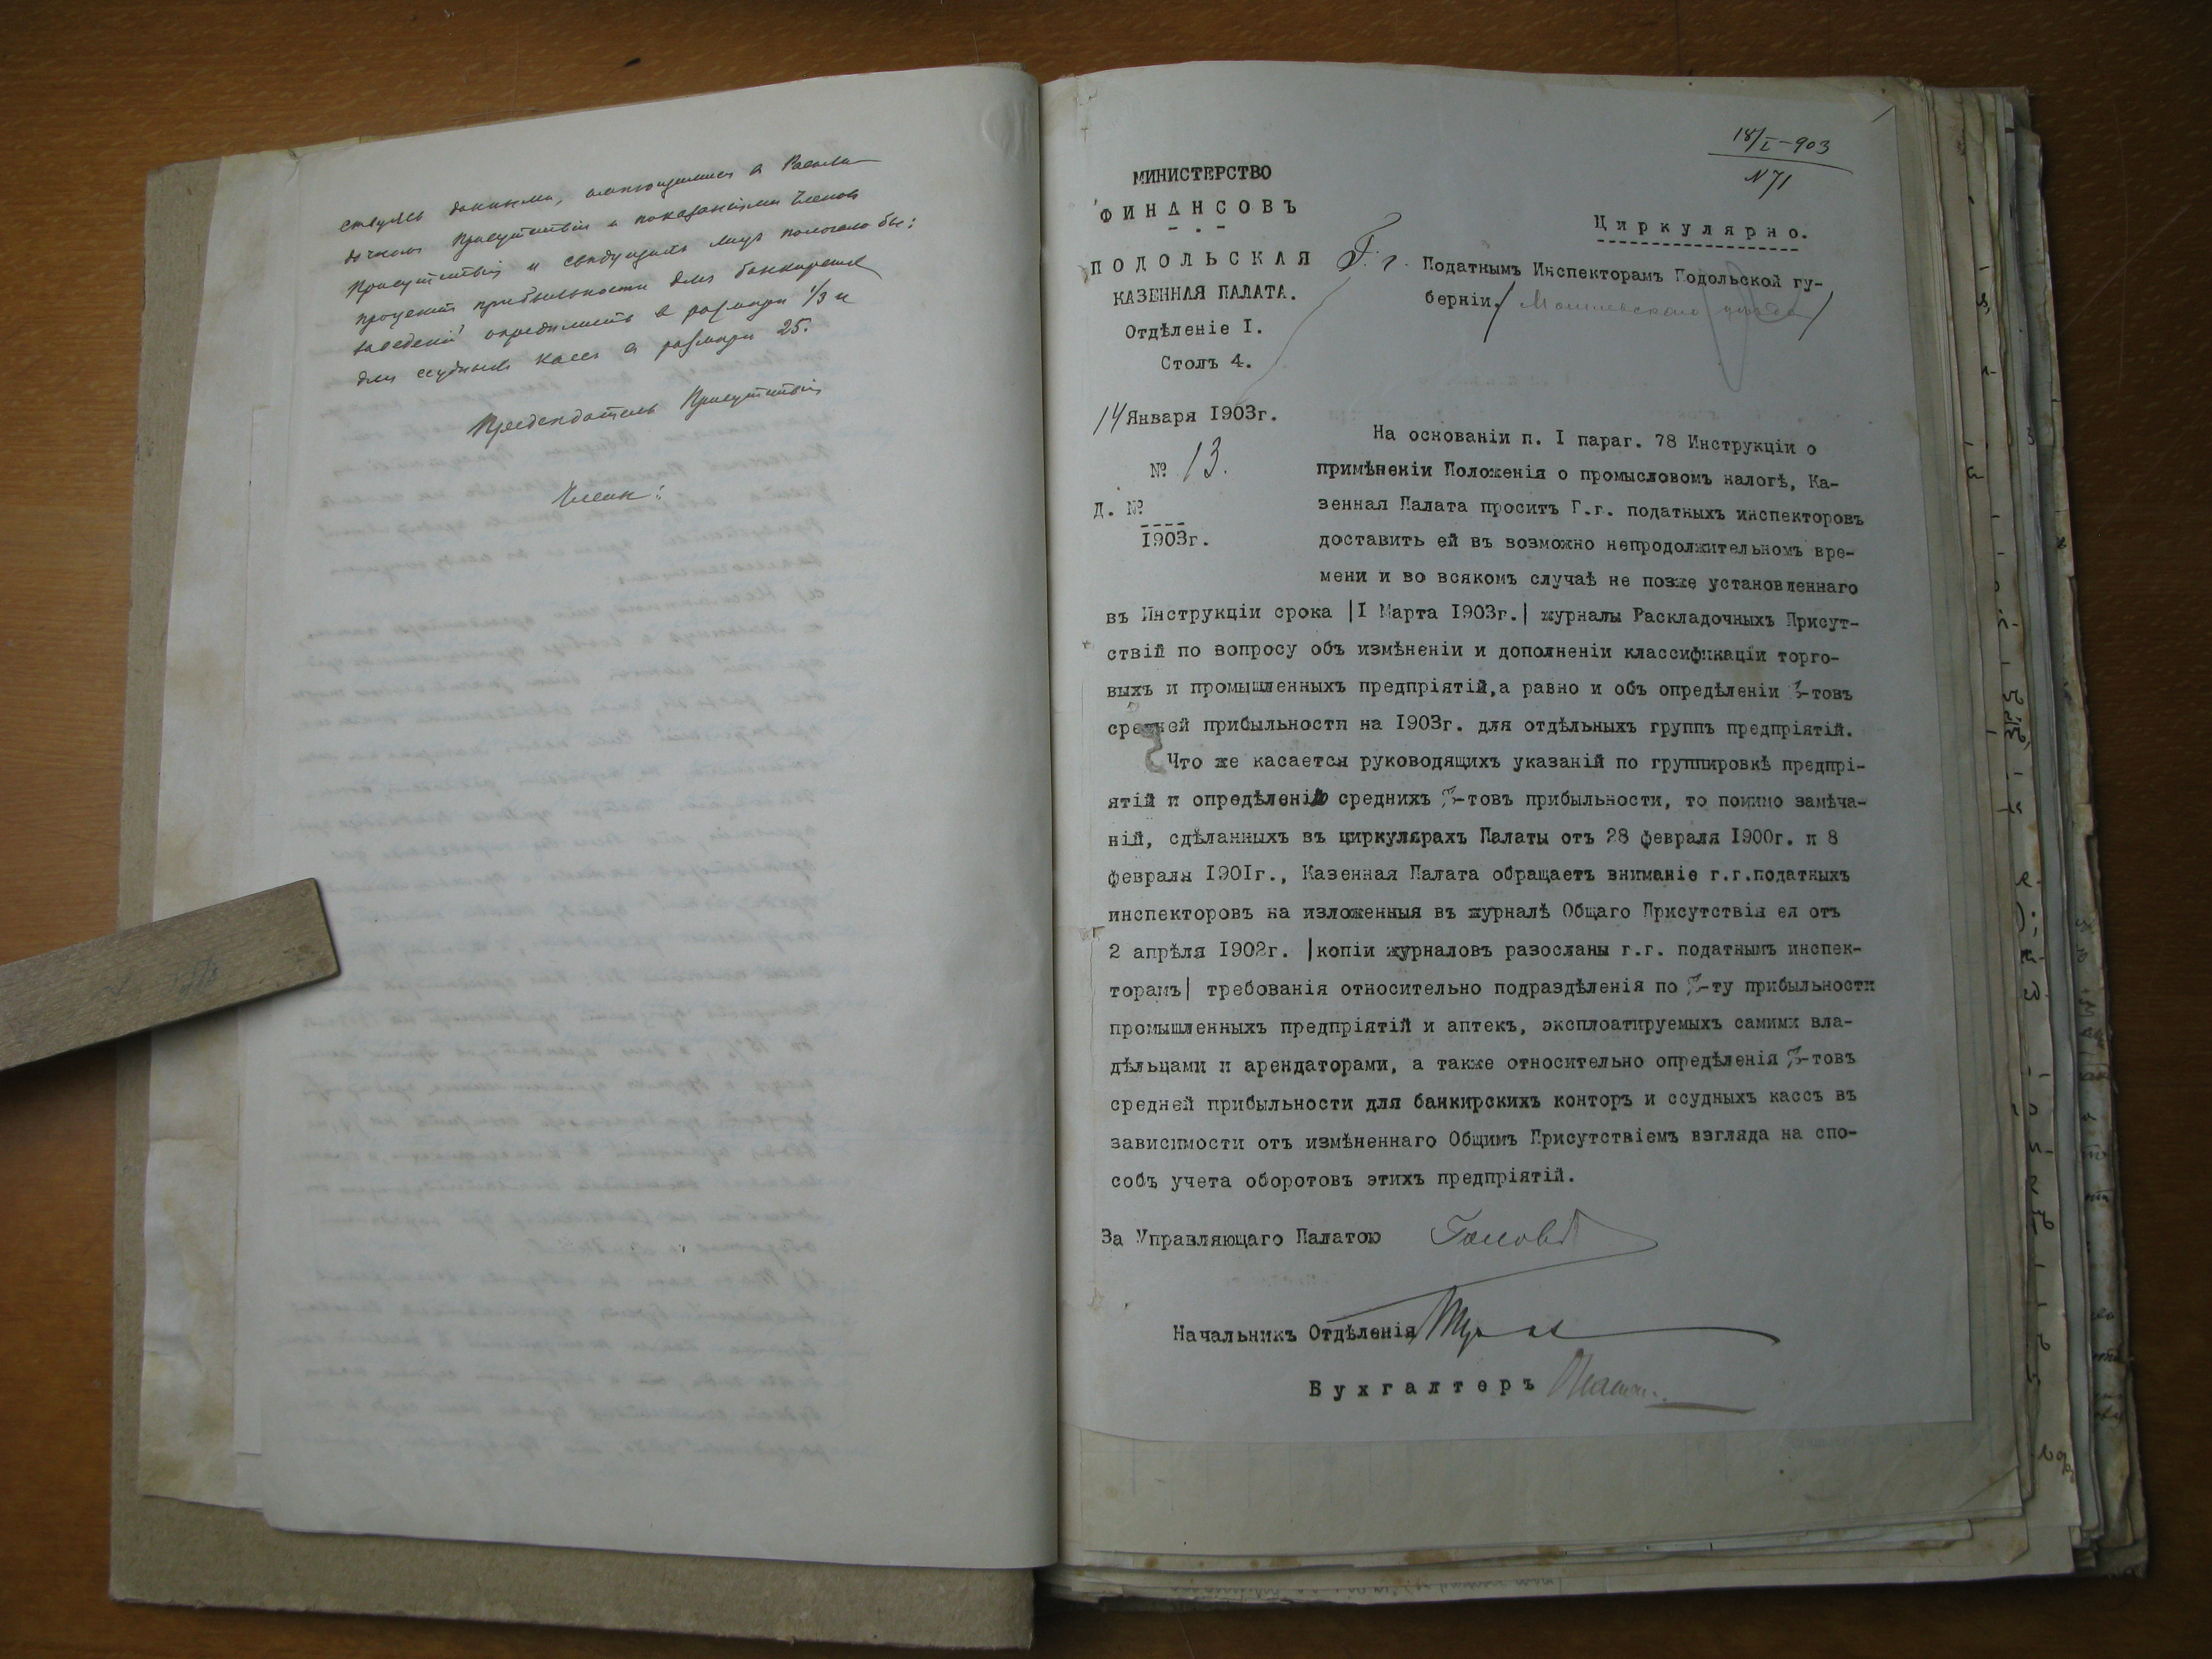 ствуясь данными, имеющимися в Раскла-
дочном Присутствіи и показаніями Членов
Присутствія и сведущих лиц полагало бы:
процент прибыльности для банкирских
заведений определить в размере 1/3 и
для ссудных касс в размере 25.
Председатель Присутствія
Члены:
18/I-903
N 71
МИНИСТЕРСТВО
ФИНАНСОВЪ
ПОДОЛЬСКАЯ
КАЗЕННАЯ ПАЛАТА.
Отдѣленіе I.
Столъ 4.
14 Января 1903г.
№ 13.
Д. №
1903г.
Циркулярно.
Г.г. Податнымъ Инспекторамъ Подольской гу-
берніи.
На основаніи п. I параг. 78 Инструкціи о
примѣненіи Положенія о промысловомъ налогѣ, Ка-
зенная Палата проситъ Г.г. податныхъ инспекторовъ
доставить ей въ возможно непродолжительномъ вре-
мени и во всякомъ случаѣ не позже установленнаго
въ Инструкціи срока |I Марта 1903г.| журналы Раскладочныхъ Присут-
ствій по вопросу объ измѣненіи и дополненіи классификаціи торго-
выхъ и промышленныхъ предпріятій,а равно и объ опредѣленіи %-товъ
средней прибыльности на 1903г. для отдѣльныхъ группъ предпріятій.
Что же касается руководящихъ указаній по группировкѣ предпрі-
ятій и опредѣленію среднихъ %-товъ прибыльности, то помимо замѣча-
ній, сдѣланныхъ въ циркулярахъ Палаты отъ 28 февраля 1900г. и 8
февраля 1901г., Казенная Палата обращаетъ вниманіе г.г.податныхъ
инспекторовъ на изложенныя въ журналѣ Общаго Присутствія ея отъ
2 апрѣля 1902г. |копіи журналовъ разосланы г.г. податнымъ инспек-
торамъ| требованія относительно подраздѣленія по %-ту прибыльности
промышленныхъ предпріятій и аптекъ, эксплоатируемыхъ самими вла-
дѣльцами и арендаторами, а также относительно опредѣленія %-товъ
средней прибыльности для банкирскихъ конторъ и ссудныхъ кассъ въ
зависимости отъ измѣненнаго Общимъ Присутствіемъ взгляда на спо-
собъ учета оборотовъ этихъ предпріятій.
За Управляющаго Палатою
Начальникъ Отдѣленія
Бухгалтеръ